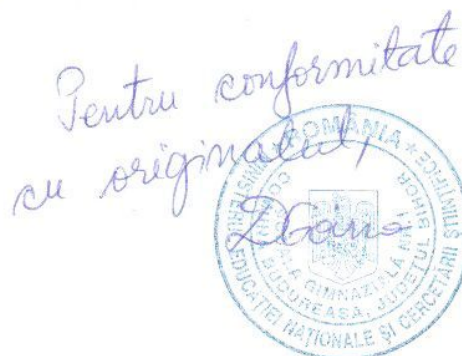 Pentru conformitate
cu originalul,
ROMÂNIA
MINISTERUL EDUCAȚIEI NAȚIONALE ȘI CERCETĂRII ȘTIINȚIFICE
GIMNAZIALĂ NR. 1
BUCUREASA, JUDEȚUL BIHOR